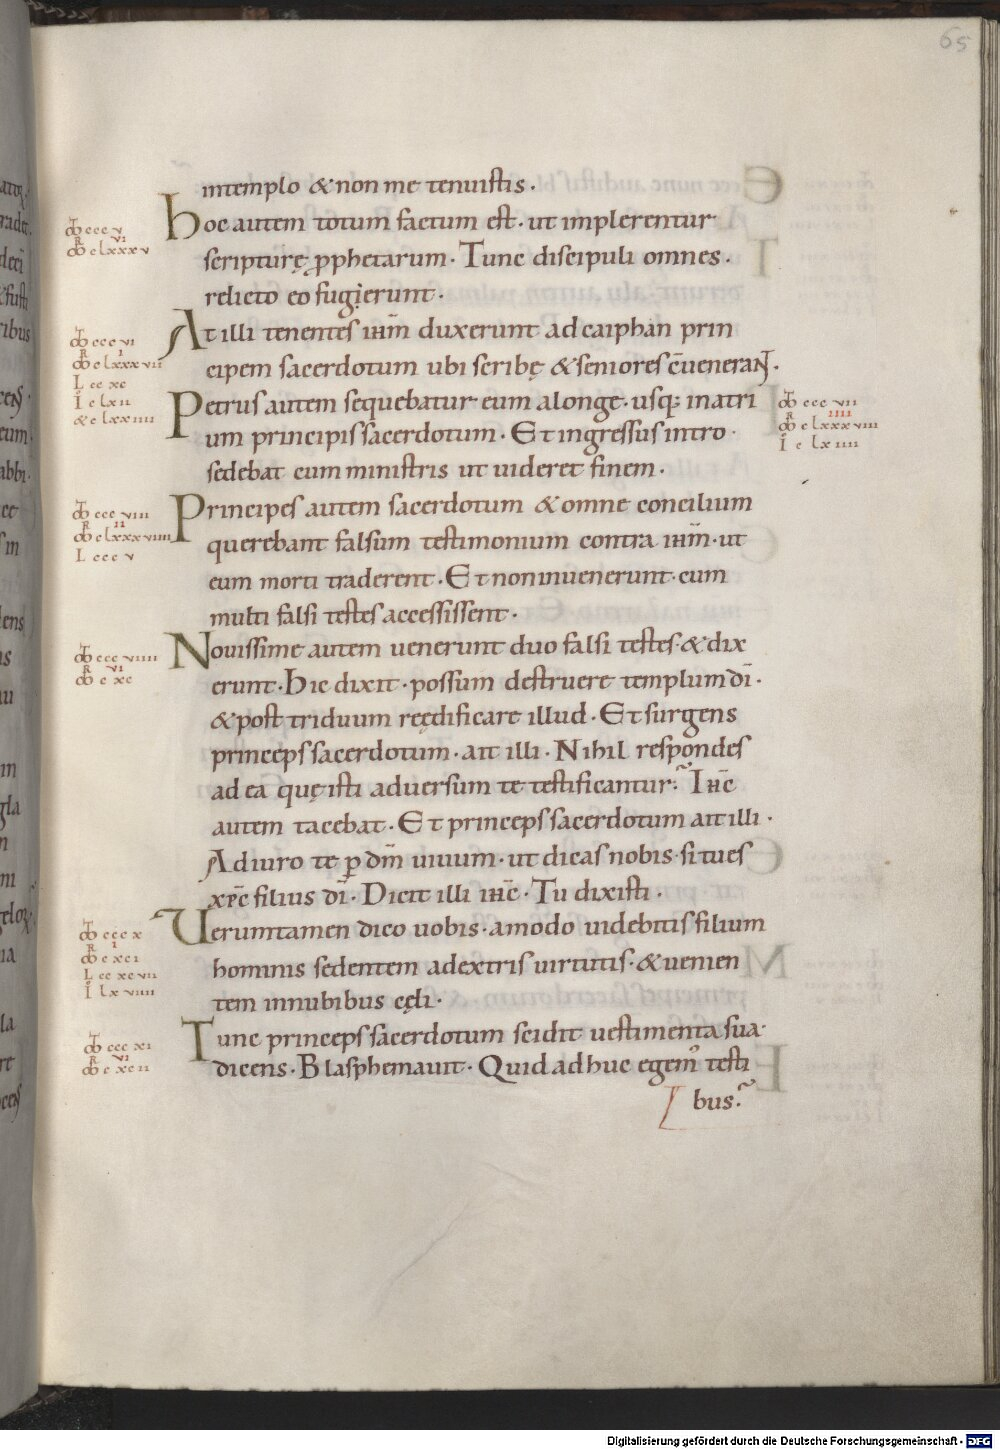 65
intemplo & non me tenuistis ·
Hoc autem totum factum est · ut implerentur
scripturę ꝓphetarum · Tunc discipuli omnes ·
relicto eo fugierunt ·
At illi tenentes ihm̅ duxerunt ad caiphan prin
cipem sacerdotum ubi scribę & seniores c̅uenerant ·
Petrus autem sequebatur eum alonge · usq; in atri
um principis sacerdotum · Et ingressus intro ·
sedebat cum ministris ut uideret finem ·
Principes autem sacerdotum & omne concilium
querebant falsum testimonium contra ihm̅ · ut
eum morti traderent · Et non inuenerunt · cum
multi falsi testes accessissent ·
Nouissime autem uenerunt duo falsi testes · & dix
erunt · Hic dixit · possum destruere templum di̅ ·
& post triduum reędificare illud · Et surgens
princeps sacerdotum · ait illi · Nihil respondes
ad ea quę isti aduersum te testificantur? Ihc̅
autem tacebat · Et princeps sacerdotum ait illi ·
Adiuro te ꝑ dm̅ uiuum · ut dicas nobis · si tu es
xpc̅ filius di̅ · Dicit illi ihc̅ · Tu dixisti ·
Uerumtamen dico uobis · amodo uidebitis filium
hominis sedentem adextris uirtutis · & uenien
tem innubibus cęli ·
Tunc princeps sacerdotum scidit uestimenta sua ·
dicens · Blasphemauit · Quid adhuc egem᾽ testi
bus?
ccc v
c lxxxv
ccc vi
c lxxxvii
L cc xc
I c lxii
& c lxxiiii
ccc vii
c lxxxviii
I c lxiiii
ccc viii
c lxxxviiii
L ccc v
ccc viiii
c xc
ccc x
c xci
L cc xcvii
I lxviiii
ccc xi
c xcii
Digitalisierung gefördert durch die Deutsche Forschungsgemeinschaft - DFG